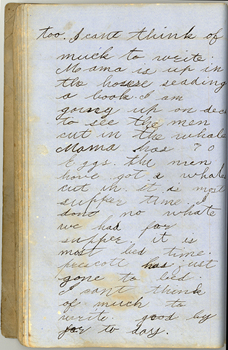 too. I cant think of
much to write.
Mama is up in
the house reading
a book. I am
going up on deck
to see the men
cut in the whale
Mama has 70
Eggs. the men
have got a whale
cut in. it is most
supper time. I
dont no whate
we had for
supper. it is
most bed time.
prescott has just
gone to bed.
I cant think
of much to
write good by
for to day.